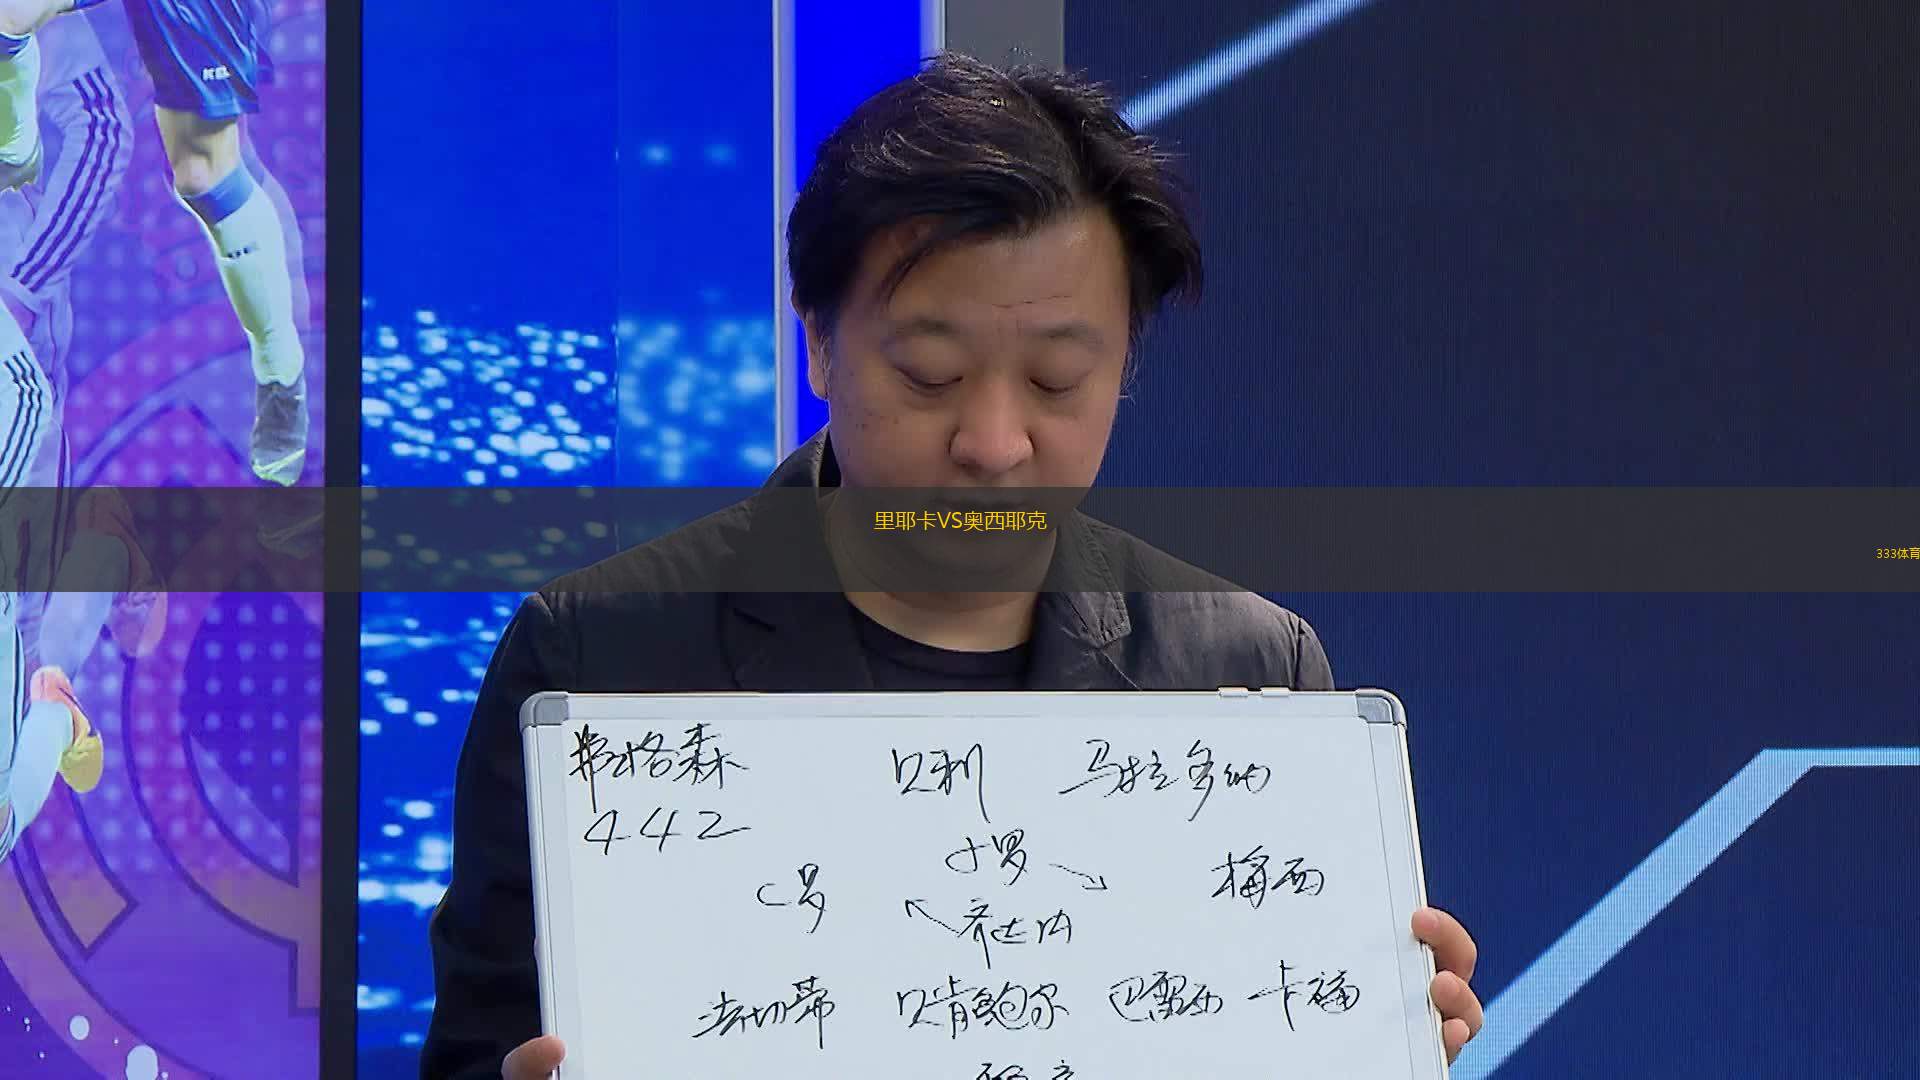 里耶卡VS奥西耶克
333体育
弗格森 贝利 马拉多纳
442
小罗
C罗 梅西
齐达内
法切蒂 贝肯鲍尔 巴雷西 卡福